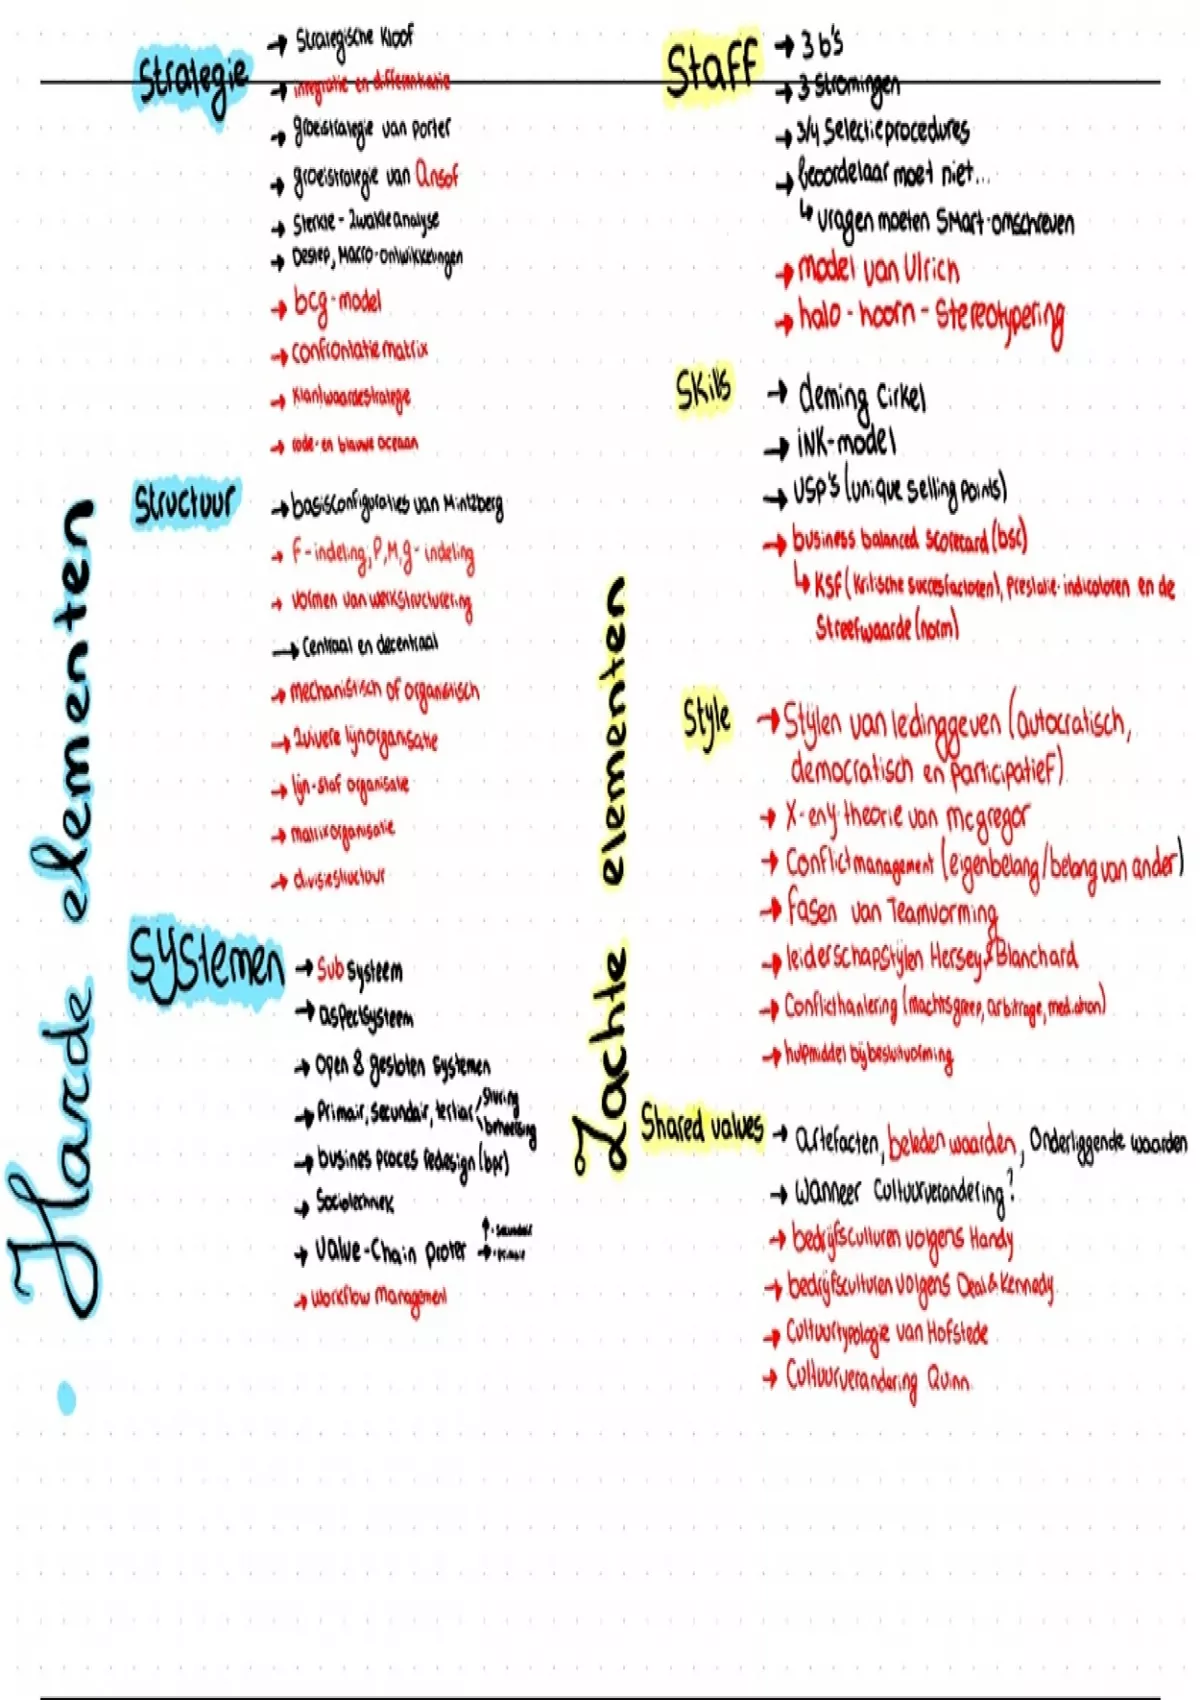 Harde elementen
Strategie
→ Strategische kloof
→ integratie en differentiatie
→ groeistrategie van porter
→ groeistrategie van Ansof
→ Sterkte-zwakteanalyse
→ Destep, Macro-ontwikkelingen
→ bcg-model
→ confrontatiematrix
→ klantwaardestrategie
→ rode- en blauwe oceaan
Structuur
→ basisconfiguraties van Mintzberg
→ F-indeling, P,M,g-indeling
→ vormen van werkstructurering
→ Centraal en decentraal
→ mechanistisch of organistisch
→ zuivere lijnorganisatie
→ lijn-staf organisatie
→ matrixorganisatie
→ divisiestructuur
Systemen
→ Subsysteem
→ aspectsysteem
→ open & gesloten systemen
→ Primair, secundair, tertiar
sturing
beheersing
→ busines proces redesign (bpr)
→ Sociotechniek
→ Value-Chain proter
↑ · secundair
→ · primair
→ Workflow Management
Zachte elementen
Staff
→ 3 b's
→ 3 Stromingen
→ 3/4 Selectieprocedures
→ beoordelaar moet niet...
↳ vragen moeten SMart-omschreven
→ model van Ulrich
→ halo-hoorn-Stereotypering
Skills
→ deming cirkel
→ iNK-model
→ USP's (unique selling points)
→ business balanced scorecard (bsc)
↳ KSF (Kritische succesfactoren), prestatie-indicatoren en de
Streefwaarde (norm)
Style
→ Stijlen van ledinggeven (autocratisch,
democratisch en participatief)
→ X- en y theorie van mcgregor
→ Conflictmanagement (eigenbelang/belang van ander)
→ fasen van Teamvorming
→ leiderschapstijlen Hersey & Blanchard
→ Conflicthanlering (machtsgreep, arbitrage, mediation)
→ hulpmiddel bij besluitvorming
Shared values
→ artefacten, beleden waarden, Onderliggende waarden
→ wanneer cultuurverandering?
→ bedrijfsculturen volgens Handy
→ bedrijfsculturen volgens Deal & Kennedy
→ Cultuurtypologie van Hofstede
→ Cultuurverandering Quinn